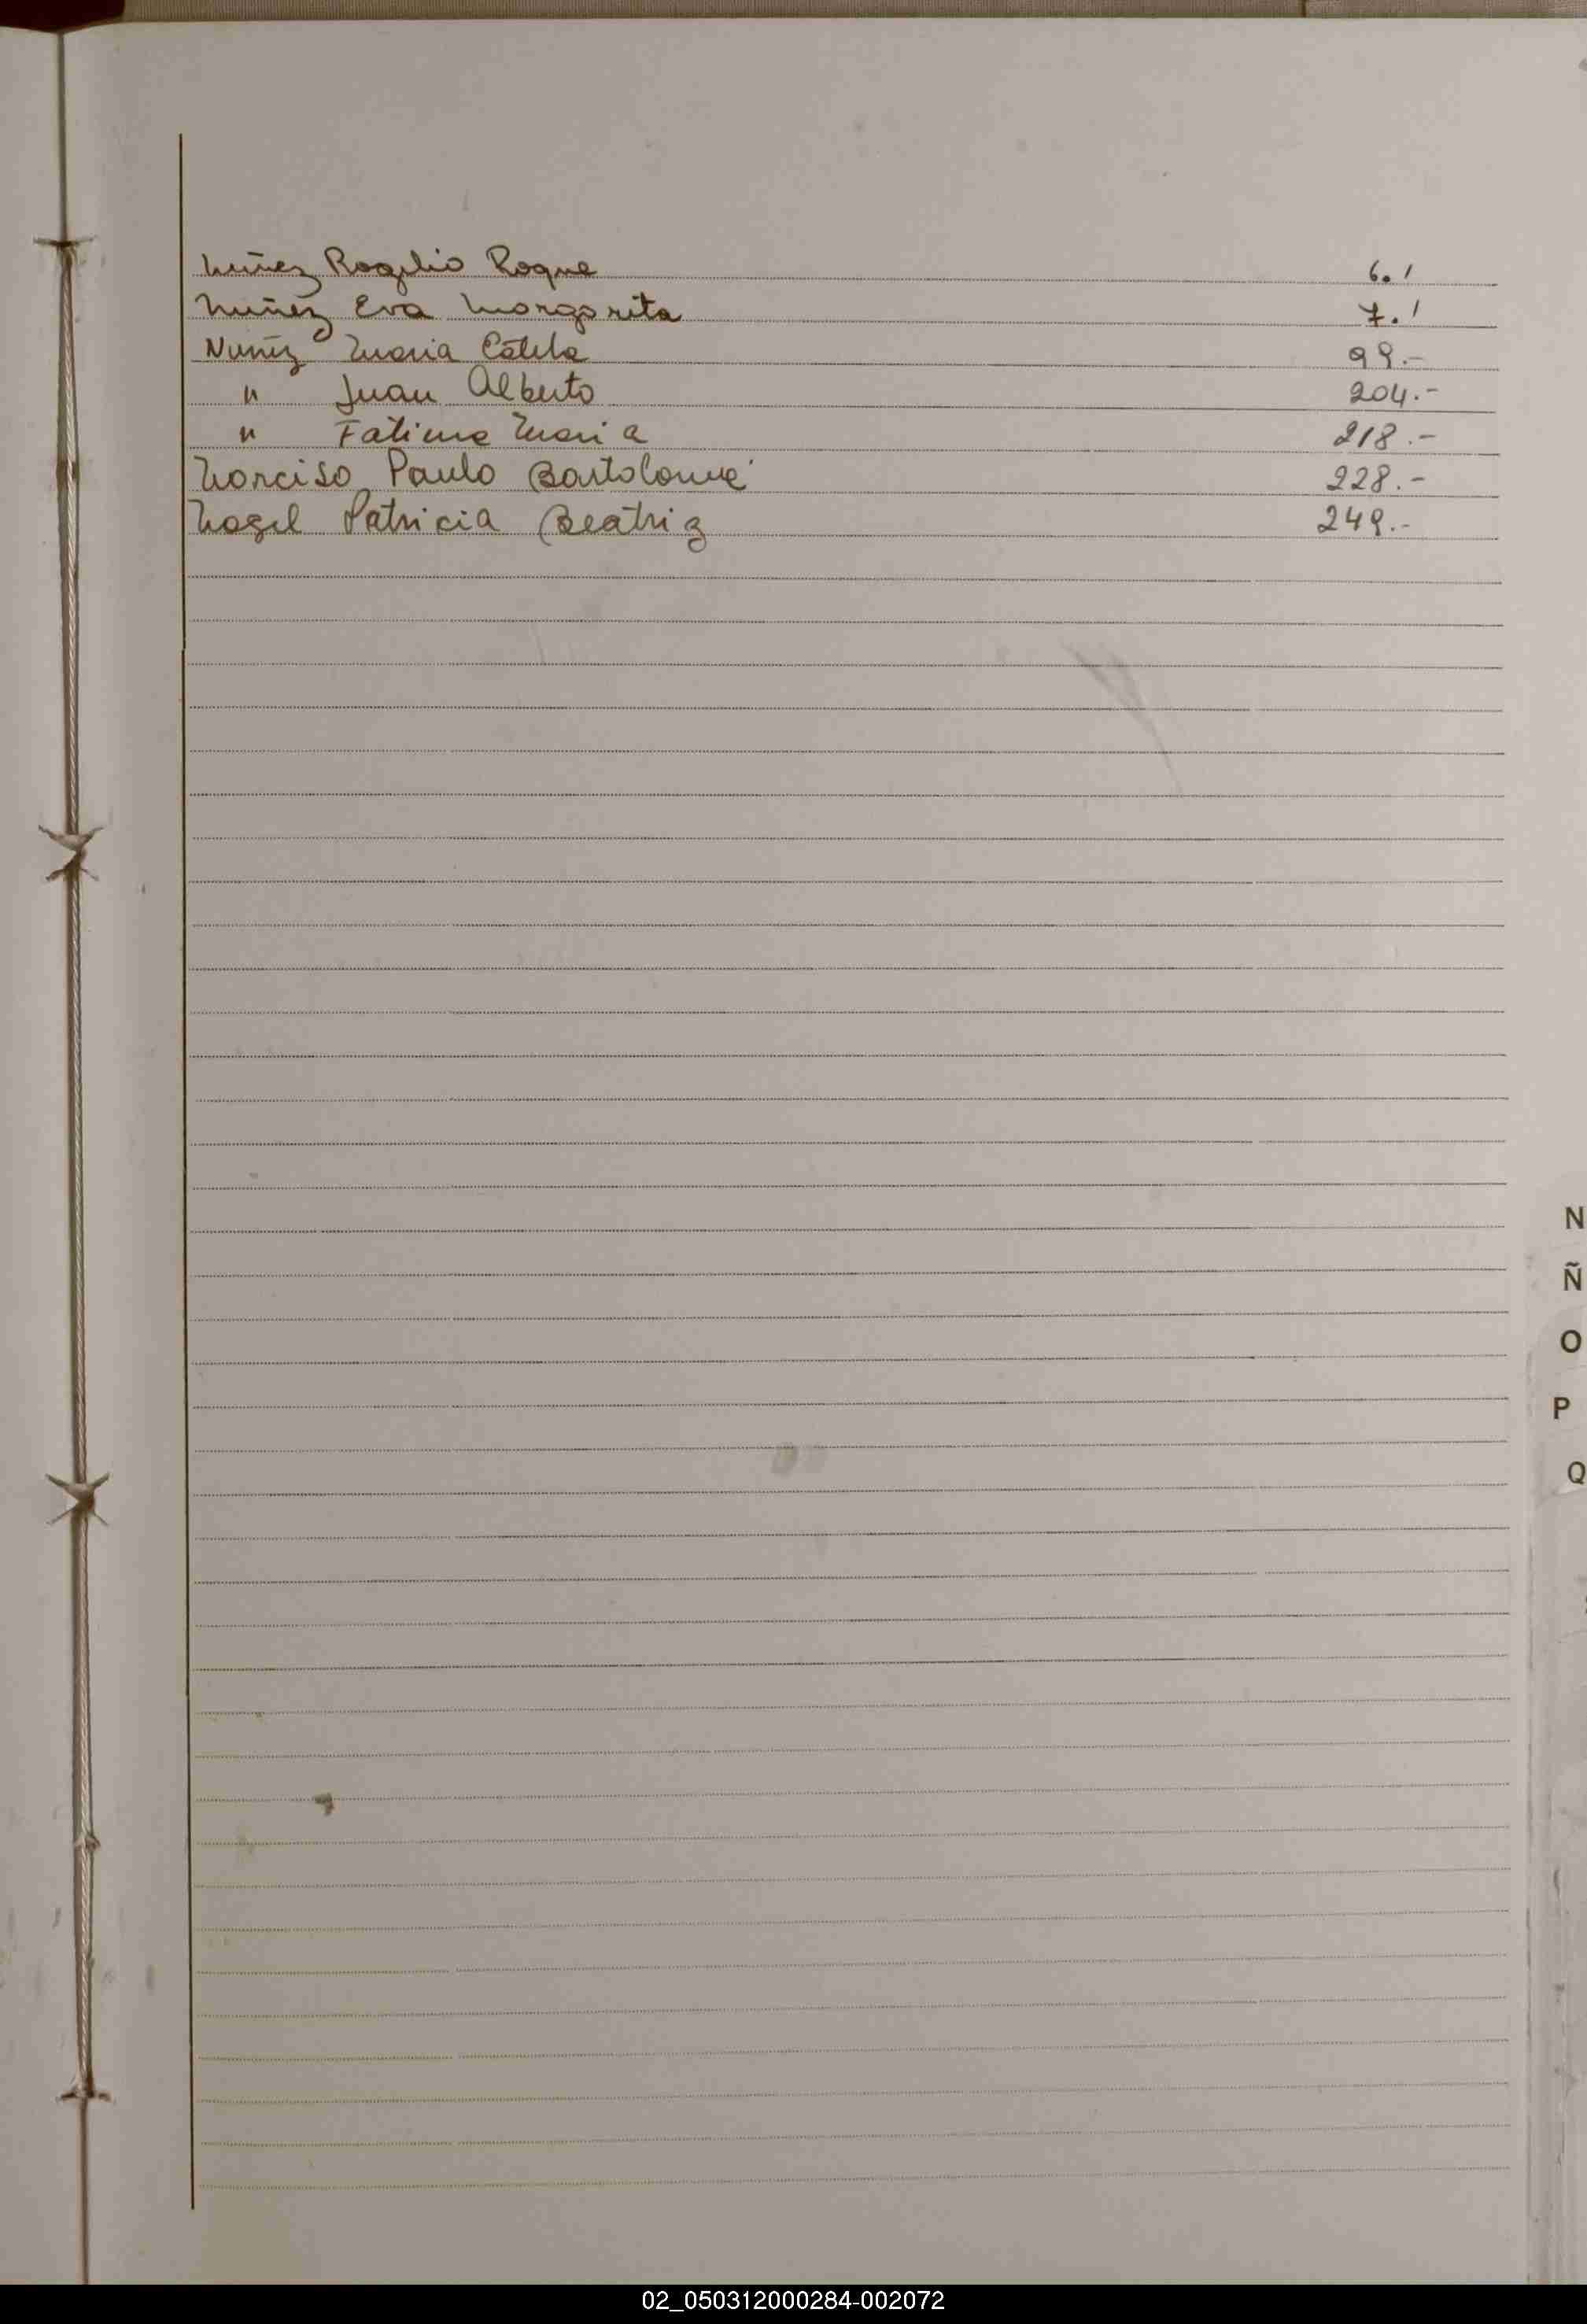 Nuñez Rogelio Roque 6.'
Nuñez Eva Margarita 7.'
Nuñez Maria Estela 99.-
" Juan Alberto 204.-
" Fatima Maria 218.-
Narciso Paulo Bartolomé 228.-
Nagel Patricia Beatriz 249.-
N
Ñ
O
P
Q
02_050312000284-002072